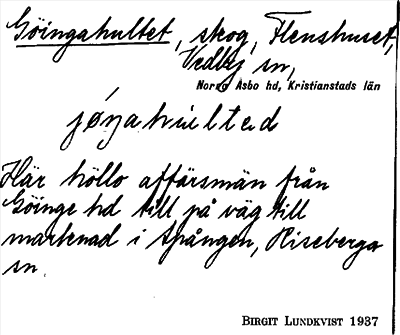 Göingahultet, skog, Flenshuset,
Vedby sn,
Norra Åsbo hd, Kristianstads län
Här höllo affärsmän från
Göinge hd till på väg till
marknad i Spången, Riseberga
sn.
BIRGIT LUNDKVIST 1937